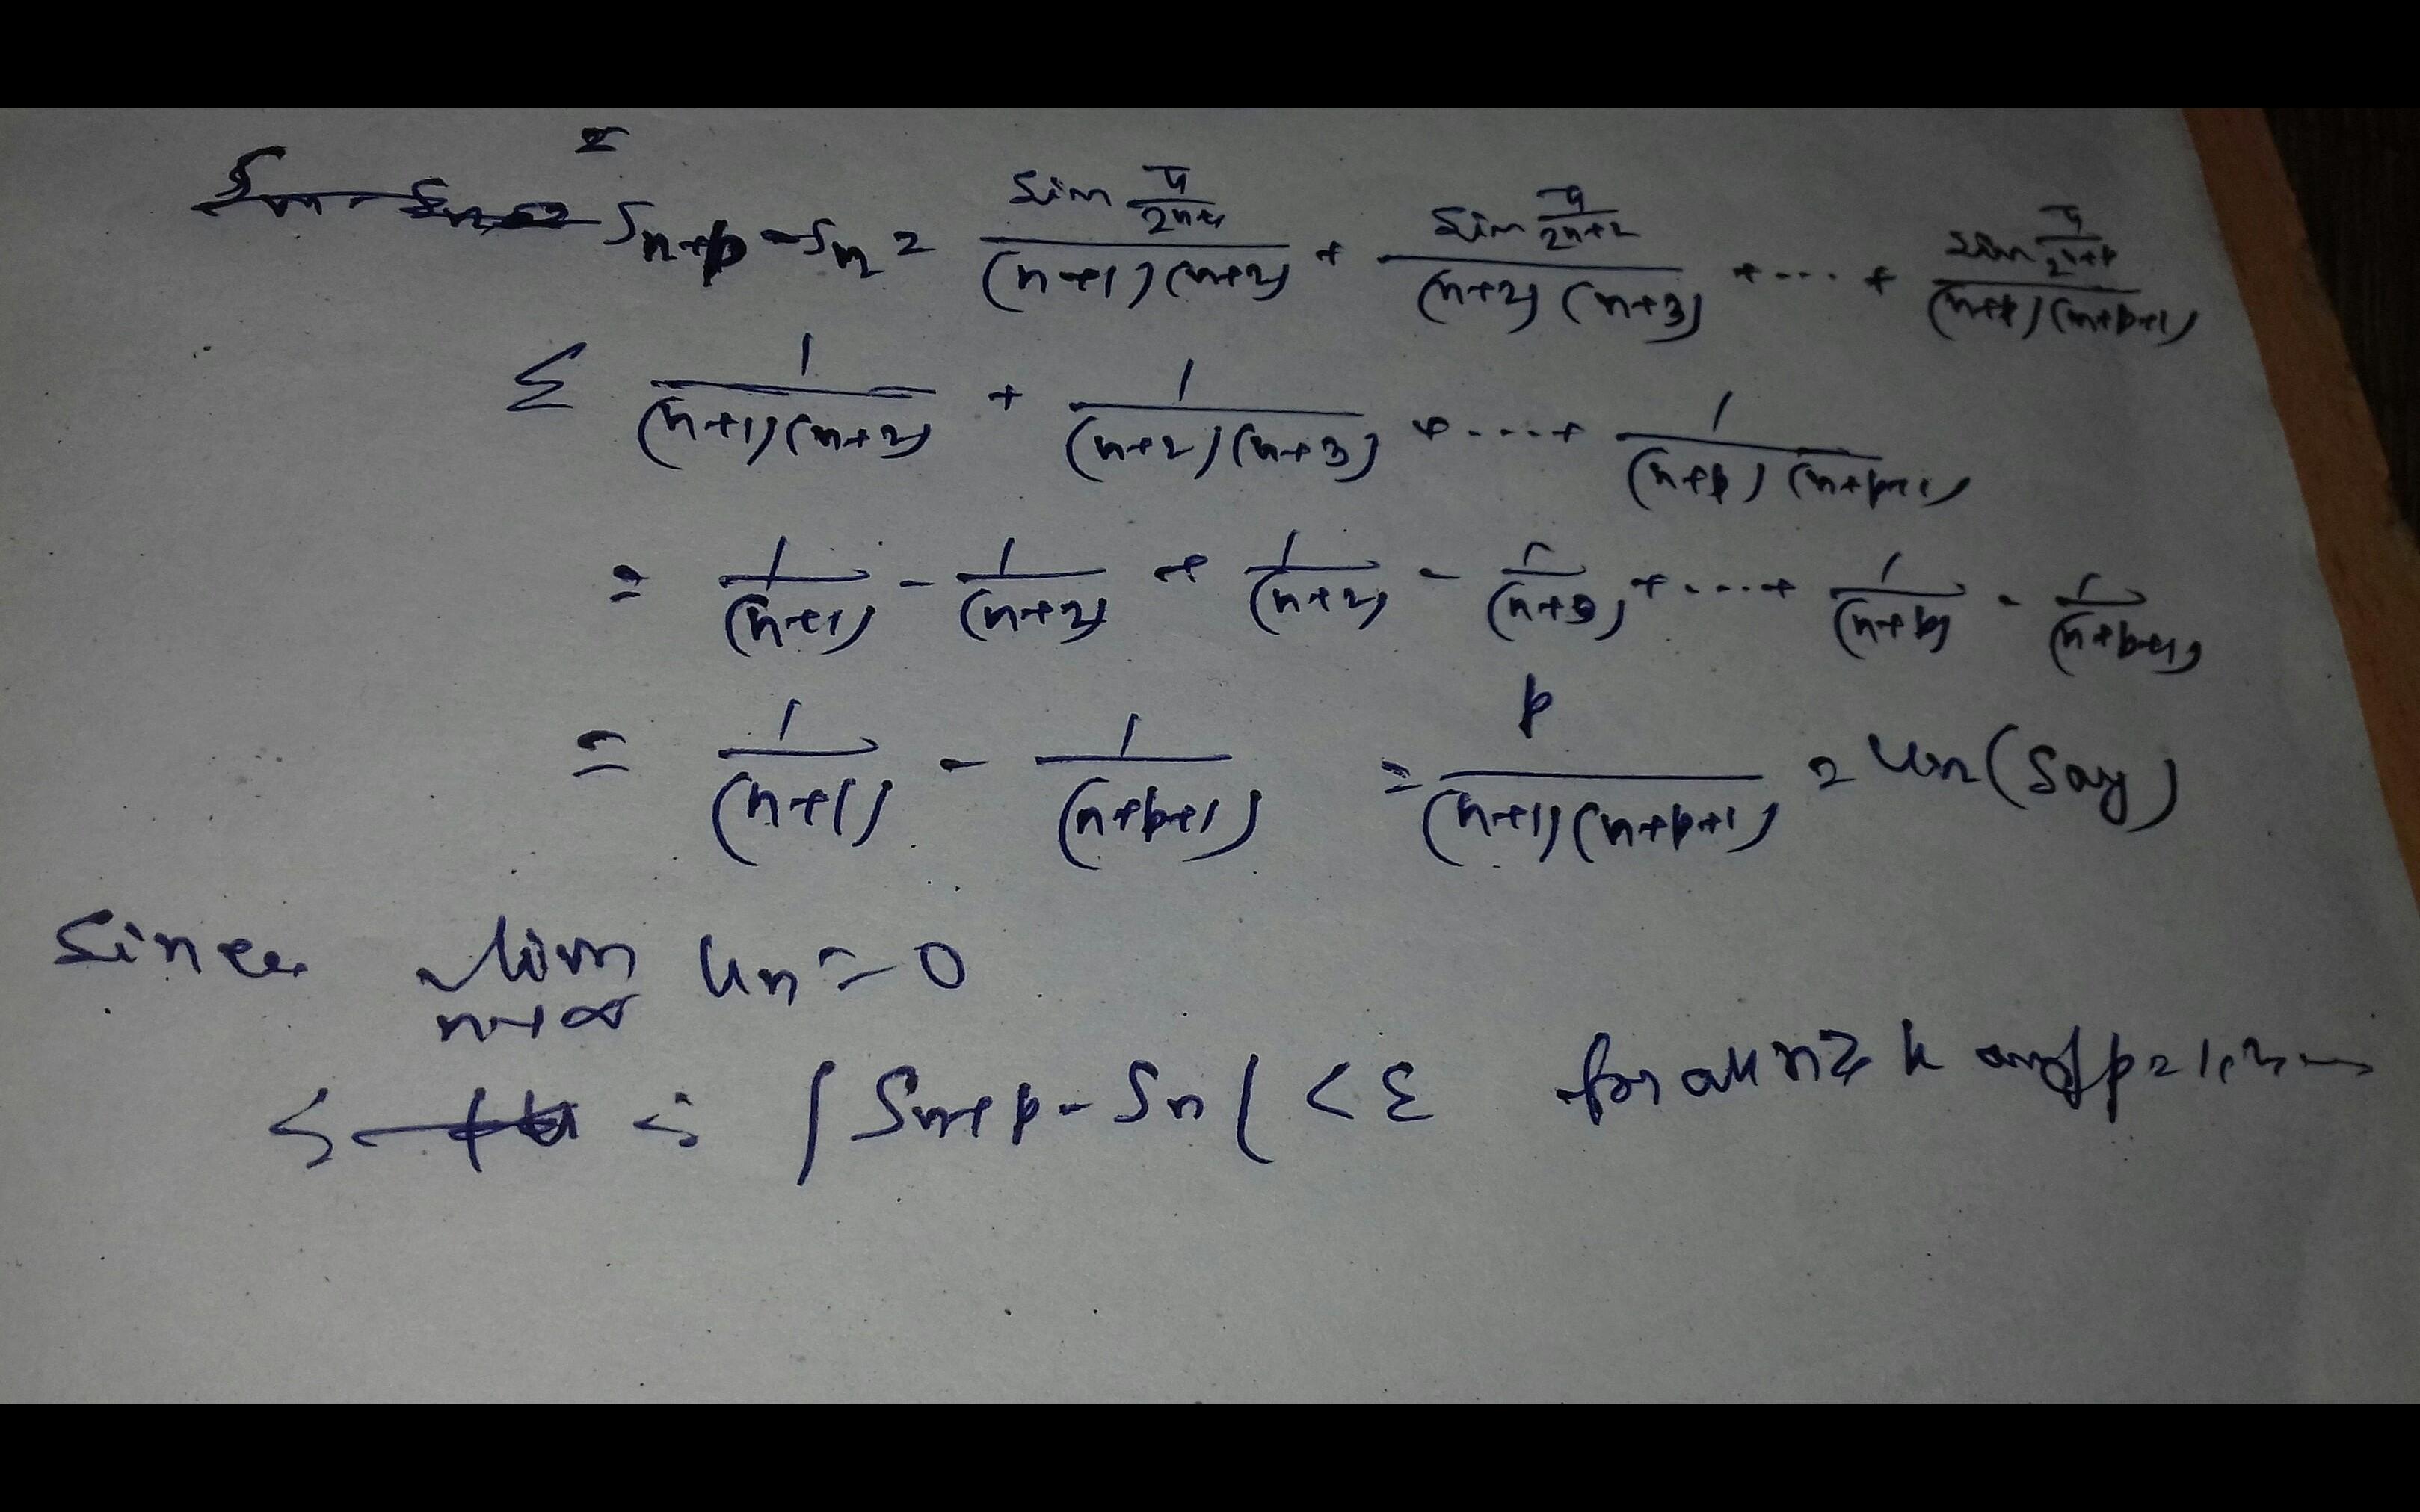 S_{n+p} - S_n = \frac{\sin \frac{π}{2n+1}}{(n+1)(n+2)} + \frac{\sin \frac{π}{2n+2}}{(n+2)(n+3)} + .... + \frac{\sin \frac{π}{2n+p}}{(n+p)(n+p+1)}
≤ \frac{1}{(n+1)(n+2)} + \frac{1}{(n+2)(n+3)} + .... + \frac{1}{(n+p)(n+p+1)}
= \frac{1}{(n+1)} - \frac{1}{(n+2)} + \frac{1}{(n+2)} - \frac{1}{(n+3)} + .... + \frac{1}{(n+p)} - \frac{1}{(n+p+1)}
= \frac{1}{(n+1)} - \frac{1}{(n+p+1)} = \frac{p}{(n+1)(n+p+1)} = u_n (say)
Since \lim_{n→∞} u_n = 0
|S_{n+p} - S_n| < ε for all n ≥ k and p = 1, 2, ...